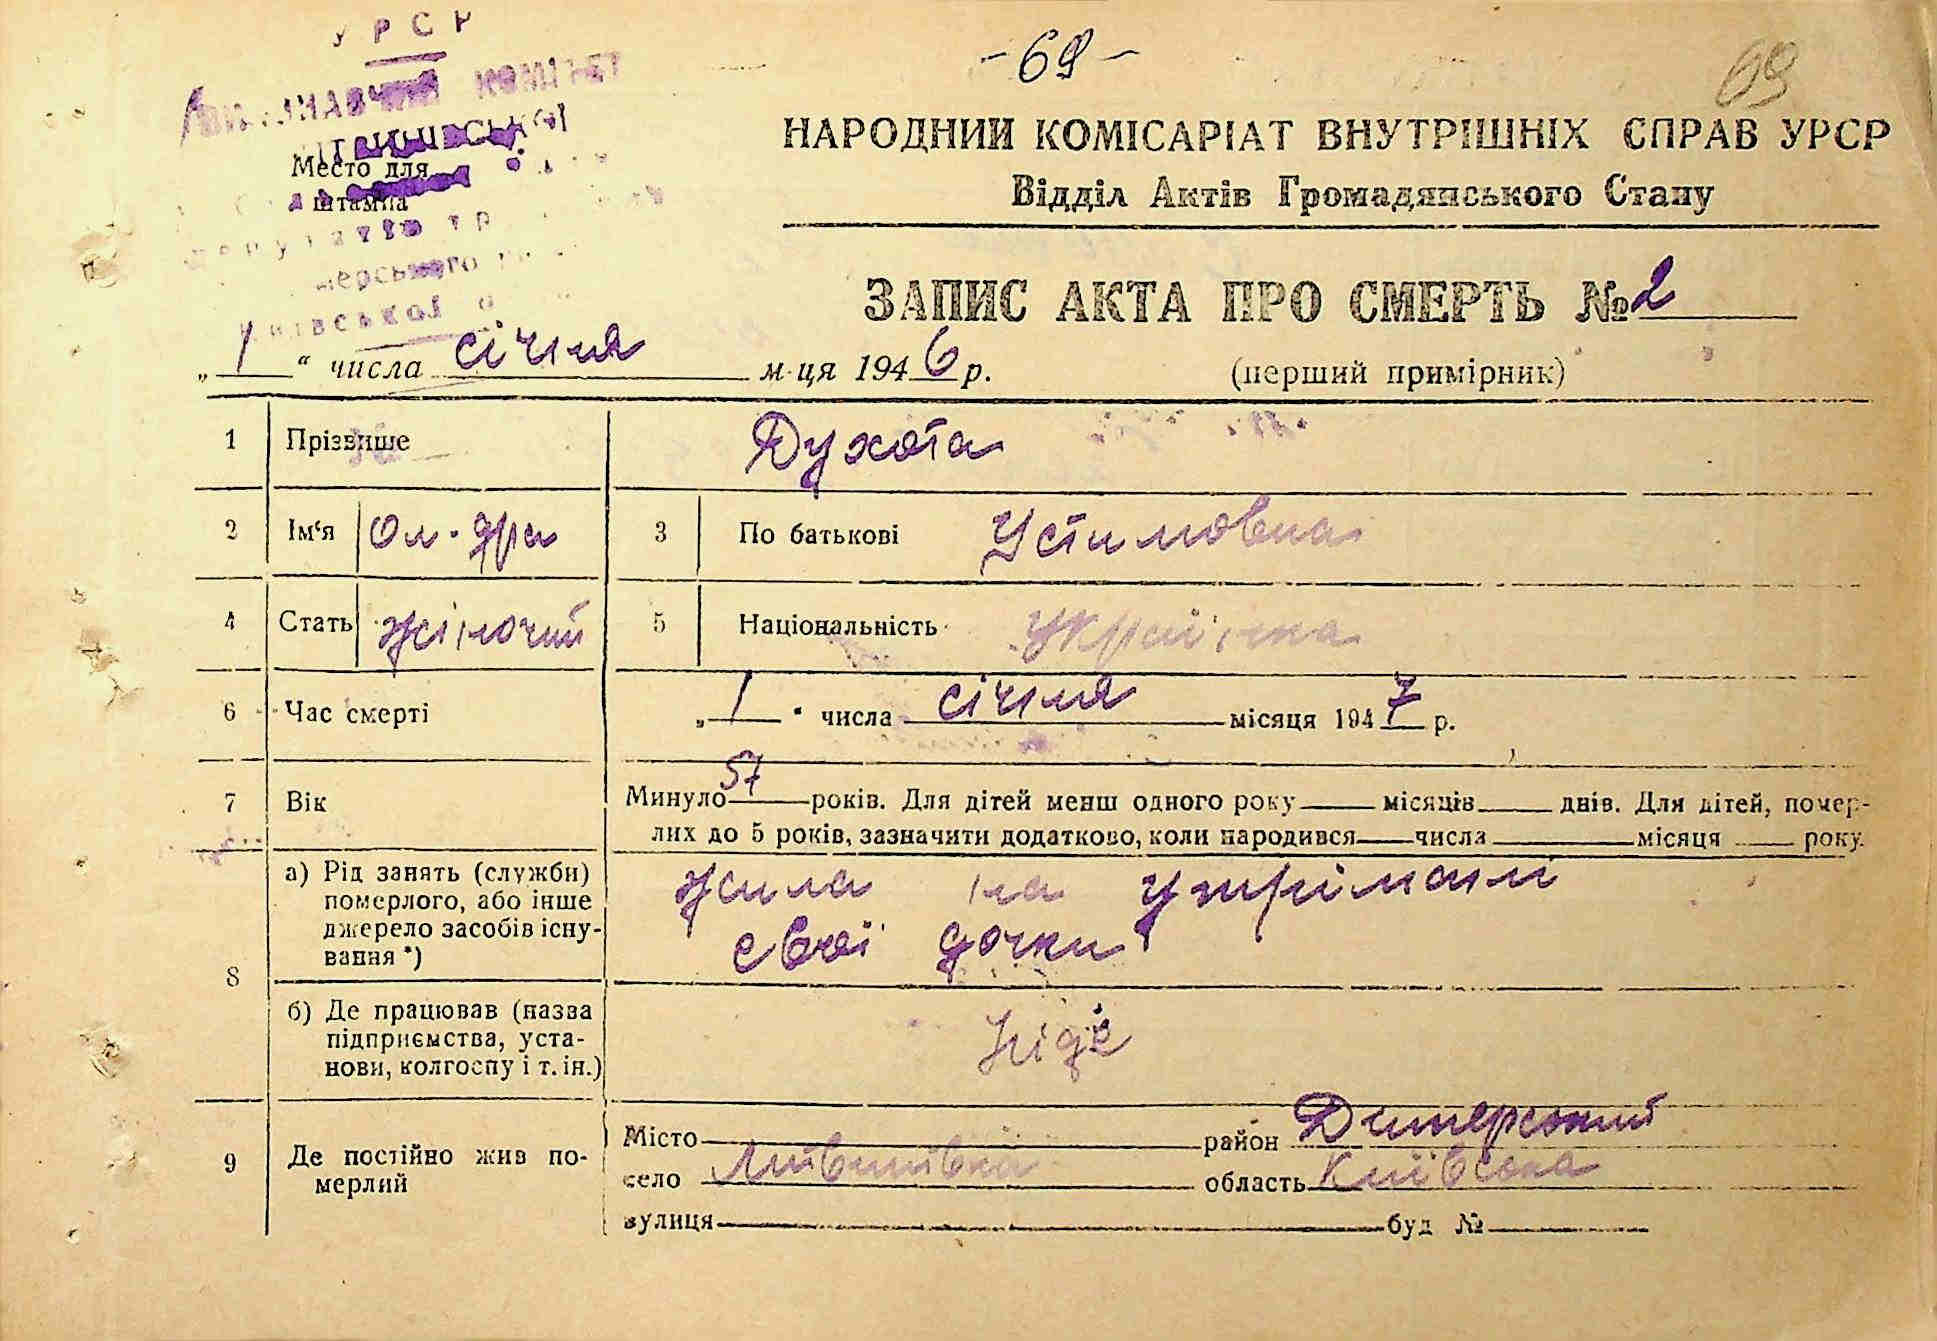 УРСР
ВИКОНАВЧИЙ КОМІТЕТ
Место для
штампа
Київської
- 69 -
69
НАРОДНИЙ КОМІСАРІАТ ВНУТРІШНІХ СПРАВ УРСР
Відділ Актів Громадянського Стану
ЗАПИС АКТА ПРО СМЕРТЬ № 2
„ 1 “ числа січня м-ця 1946 р. (перший примірник)
1 Прізвище Духота
2 Ім‘я Ол-дра 3 По батькові Устимовна
4 Стать жіночий 5 Національність Українка
6 Час смерті „ 1 “ числа січня місяця 1947 р.
7 Вік Минуло 57 років. Для дітей менш одного року місяців днів. Для дітей, помер-
лих до 5 років, зазначити додатково, коли народився числа місяця року.
8 а) Рід занять (служби)
померлого, або інше
джерело засобів існу-
вання *)
жила на утрімані
своі дочки
б) Де працював (назва
підприємства, уста-
нови, колгоспу і т. ін.)
Нідѐ
9 Де постійно жив по-
мерлий
Місто район Димерський
село Литвинівка область Київська
вулиця буд №